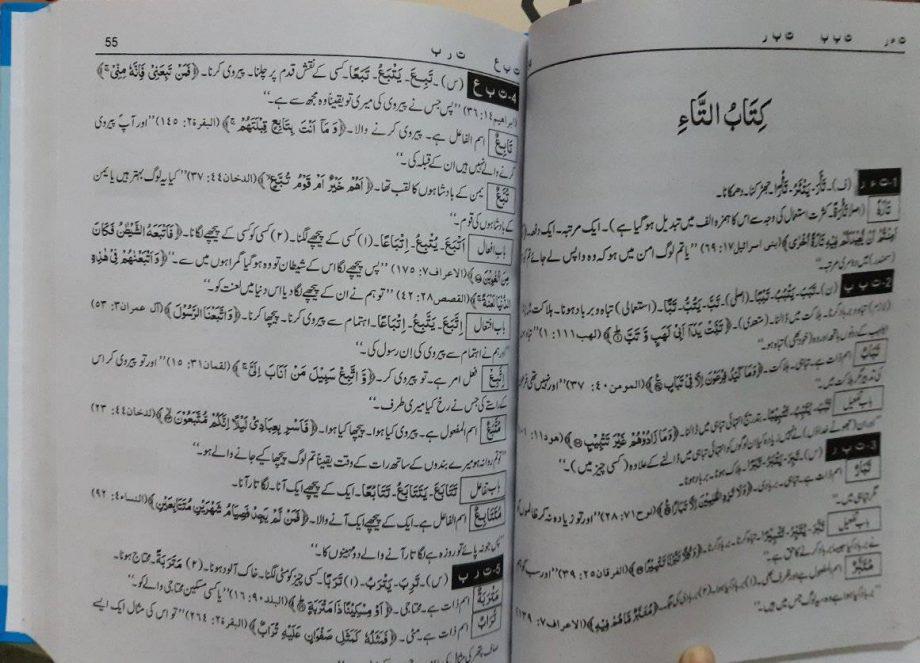 ت ء ر ت ب ب ت ب ر
كِتَابُ التَّاءِ
1- ت ء ر (ف)۔ تَأَرَ۔ يَتْئَرُ۔ تَأْرًا۔ جھڑکنا۔ دھمکانا۔
تَارَةً (اصلاً تَأْرَةً۔ کثرت استعمال کی وجہ سے اس کا ہمزہ الف میں تبدیل ہو گیا ہے)۔ ایک مرتبہ۔ ایک دفعہ۔
(بنی اسرائیل ۱۷: ۶۹) ”یا تم لوگ امن میں ہو کہ وہ واپس لے جائے تم کو
(سمندر) میں دوسری مرتبہ۔“
2- ت ب ب (ن) تَبَبَ۔ يَتْبُبُ۔ تَبَبًا۔ (اصلی) تَبَّ۔ يَتُبُّ۔ تَبًّا۔ (استعمالی) تباہ و برباد ہونا۔ ہلاکت
(لازم) تباہ و برباد کرنا۔ ہلاکت میں ڈالنا۔ (متعدی)۔ ﴿تَبَّتْ يَدَآ اَبِيْ لَهَبٍ وَّ تَبَّ﴾ (لھب ۱۱۱: ۱)
تَبَابٌ اسم ذات ہے۔ تباہی۔ ہلاکت۔ ﴿وَمَا كَيْدُ فِرْعَوْنَ اِلَّا فِيْ تَبَابٍ﴾ (المومن ۴۰: ۳۷) ”اور نہیں تھی
کی تدبیر مگر ہلاکت میں۔“
باب تفعیل تَبَّبَ۔ يُتَبِّبُ۔ تَتْبِيْبًا۔ بتدریج انتہائی تباہی میں ڈالنا۔ ﴿وَمَا زَادُوْهُمْ غَيْرَ تَتْبِيْبٍ﴾ (ھود ۱۱:
3- ت ب ر (س)۔ تَبِرَ۔ يَتْبَرُ۔ تَبَرًا۔ ہلاک ہونا۔ برباد ہونا۔
تَبَارٌ اسم ذات ہے۔ تباہی۔ بربادی۔ ﴿وَلَا تَزِدِ الظّٰلِمِيْنَ اِلَّا تَبَارًا﴾ (نوح ۷۱: ۲۸) ”اور تو زیادہ نہ کر ظالموں کو
مگر تباہی میں۔“
باب تفعیل تَبَّرَ۔ يُتَبِّرُ۔ تَتْبِيْرًا۔ تباہ کرنا۔ برباد کرنا۔ ﴿وَكُلًّا تَبَّرْنَا تَتْبِيْرًا﴾ (الفرقان ۲۵: ۳۹) ”اور سب کو ہم
نے برباد کیا جیسا برباد کرنے کا حق ہے۔“
مُتَبَّرٌ (الاعراف ۷: ۱۳۹)
55 ت ر ب ت ب ع
4- ت ب ع (س)۔ تَبِعَ۔ يَتْبَعُ۔ تَبَعًا۔ کسی کے نقش قدم پر چلنا۔ پیروی کرنا۔ ﴿فَمَنْ تَبِعَنِيْ فَاِنَّهٗ مِنِّيْ﴾
(ابراھیم ۱۴: ۳۶) ”پس جس نے پیروی کی میری تو یقیناً وہ مجھ سے ہے۔“
تَابِعٌ اسم الفاعل ہے۔ پیروی کرنے والا۔ ﴿وَ مَا اَنْتَ بِتَابِعٍ قِبْلَتَهُمْ﴾ (البقرۃ ۲: ۱۴۵) ”اور آپ پیروی
کرنے والے نہیں ہیں ان کے قبلہ کی۔“
تُبَّعٌ یمن کے بادشاہوں کا لقب تھا۔ ﴿اَهُمْ خَيْرٌ اَمْ قَوْمُ تُبَّعٍ﴾ (الدخان ۴۴: ۳۷) ”کیا یہ لوگ بہتر ہیں یا یمن
کے بادشاہوں کی قوم۔“
باب افعال اَتْبَعَ۔ يُتْبِعُ۔ اِتْبَاعًا۔ (۱) کسی کے پیچھے لگنا۔ (۲) کسی کو کسی کے پیچھے لگانا۔ ﴿فَاَتْبَعَهُ الشَّيْطٰنُ فَكَانَ
مِنَ الْغٰوِيْنَ﴾ (الاعراف ۷: ۱۷۵) ”پس پیچھے لگا اس کے شیطان تو وہ ہو گیا گمراہوں میں سے۔“ ﴿وَاَتْبَعْنٰهُمْ فِيْ هٰذِهِ
الدُّنْيَا لَعْنَةً﴾ (القصص ۲۸: ۴۲) ”تو ہم نے ان کے پیچھے لگا دیا اس دنیا میں لعنت کو۔“
باب افتعال اِتَّبَعَ۔ يَتَّبِعُ۔ اِتِّبَاعًا۔ اہتمام سے پیروی کرنا۔ پیچھا کرنا۔ ﴿وَاتَّبَعْنَا الرَّسُوْلَ﴾ (آل عمران ۳: ۵۳)
”اور ہم نے اہتمام سے پیروی کی اِن رسول کی۔“
اِتَّبِعْ فعل امر ہے۔ تو پیروی کر۔ ﴿وَّ اتَّبِعْ سَبِيْلَ مَنْ اَنَابَ اِلَيَّ﴾ (لقمان ۳۱: ۱۵) ”اور تو پیروی کر اس
کے راستے کی جس نے رخ کیا میری طرف۔“
مُتَّبَعٌ اسم المفعول ہے۔ پیروی کیا ہوا۔ پیچھا کیا ہوا۔ ﴿فَاَسْرِ بِعِبَادِيْ لَيْلًا اِنَّكُمْ مُّتَّبَعُوْنَ﴾ (الدخان ۴۴: ۲۳)
روانہ ہو میرے بندوں کے ساتھ رات کے وقت یقیناً تم لوگ پیچھا کیے جانے والے ہو۔“
باب تفاعل تَتَابَعَ۔ يَتَتَابَعُ۔ تَتَابُعًا۔ ایک کے پیچھے ایک آنا۔ لگاتار آنا۔
مُتَتَابِعٌ اسم الفاعل ہے۔ ایک کے پیچھے ایک آنے والا۔ ﴿فَمَنْ لَّمْ يَجِدْ فَصِيَامُ شَهْرَيْنِ مُتَتَابِعَيْنِ﴾ (النساء ۴: ۹۲)
”پس جو نہ پائے تو روزہ ہے لگاتار آنے والے دو مہینوں کا۔“
5- ت ر ب (س)۔ تَرِبَ۔ يَتْرَبُ۔ تَرَبًا۔ (۱) کسی چیز کو مٹی لگنا۔ خاک آلود ہونا۔ (۲) مَتْرَبَةً۔ محتاج ہونا۔
مَتْرَبَةٌ اسم ذات ہے۔ محتاجی۔ ﴿اَوْ مِسْكِيْنًا ذَا مَتْرَبَةٍ﴾ (البلد ۹۰: ۱۶) ”یا کسی مسکین محتاجی والے کو۔“
تُرَابٌ اسم ذات ہے۔ مٹی۔ ﴿فَمَثَلُهٗ كَمَثَلِ صَفْوَانٍ عَلَيْهِ تُرَابٌ﴾ (البقرۃ ۲: ۲۶۴) ”تو اس کی مثال ایک ایسے